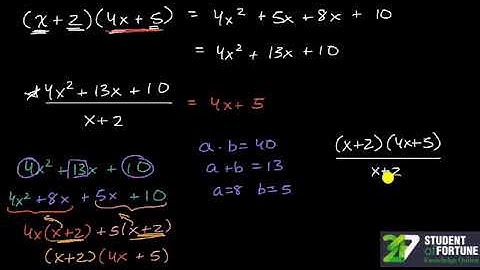 (x+2)(4x+5) = 4x² + 5x + 8x + 10
= 4x² + 13x + 10
4x² + 13x + 10
x+2
= 4x + 5
a · b = 40
a + b = 13
a=8 b=5
(x+2)(4x+5)
x+2
4x² + 13x + 10
4x² + 8x + 5x + 10
4x(x+2) + 5(x+2)
(x+2)(4x + 5)
STUDENT
OF FORTUNE